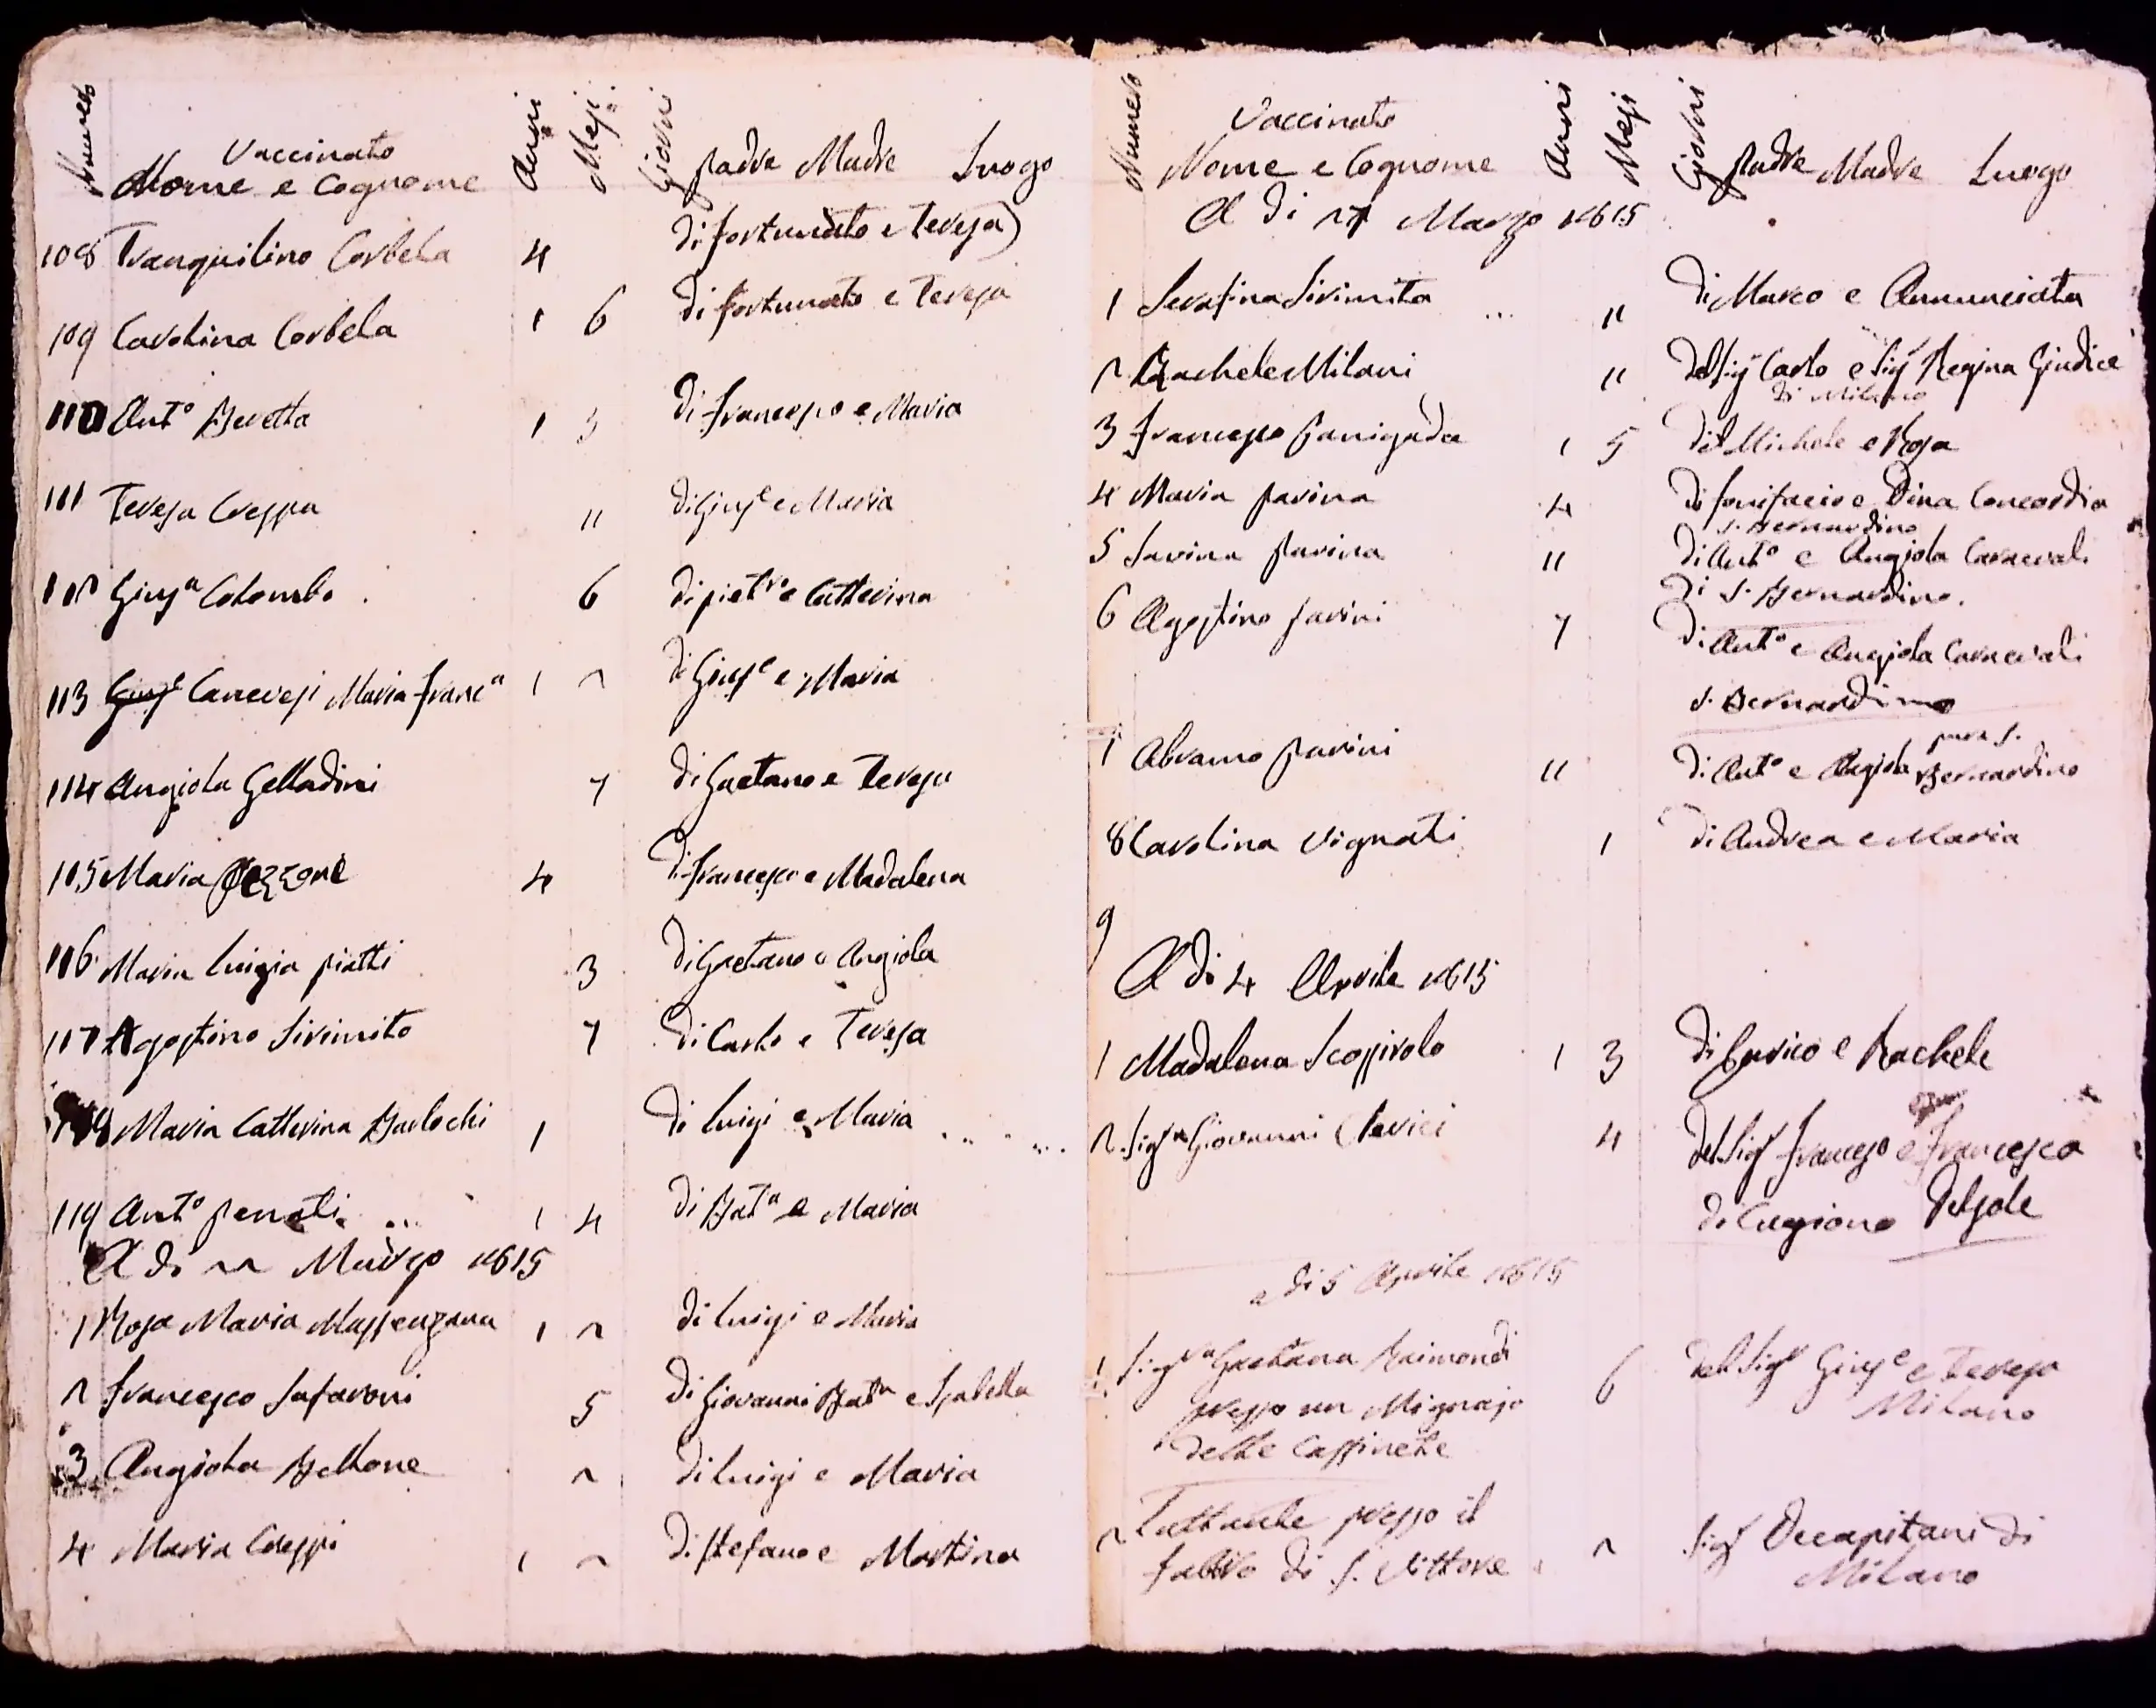 Numero Vaccinato Nome e Cognome Anni Mesi Giorni Padre Madre Luogo
108 Tranquilino Corbela 4 di Fortunato e Teresa
109 Carolina Corbela 1 6 di Fortunato e Teresa
110 Ant.o Beretta 1 3 di Francesco e Maria
111 Teresa Crespa 11 di Gius.e e Maria
112 Gius.a Colombo 6 di Pietro e Catterina
113 Gius.e Canevesi Maria Franc.a 1 2 di Gius.e e Maria
114 Angiola Gelladini 7 di Gaetano e Teresa
115 Maria Pezzone 4 di Francesco e Madalena
116 Maria Luigia Piatti 3 di Gaetano e Angiola
117 Agostino Sirimito 7 di Carlo e Teresa
118 Maria Catterina Barlochi 1 di Luigi e Maria
119 Ant.o Penati 1 4 di Bat.a e Maria
A di 22 Marzo 1815
1 Rosa Maria Massenzana 1 2 di Luigi e Maria
2 Francesco Safaroni 5 di Giovanni Bat.a e Isabella
3 Angiola Bellone 2 di Luigi e Maria
4 Maria Crespi 1 2 di Stefano e Martina
Numero Vaccinato Nome e Cognome Anni Mesi Giorni Padre Madre Luogo
A di 27 Marzo 1815
1 Serafina Sirimita 11 di Marco e Annunciata
2 Rachele Milani 11 del Sig.r Carlo e Sig.r Regina Giudice
di Milano
3 Francesco Garigada 1 5 di Michele e Rosa
4 Maria Parina 4 di Bonifacio e Dina Concordia
S. Bernardino
5 Savina Parina 11 di Ant.o e Angiola Carnevali
di S. Bernardino.
6 Agostino Parini 7 di Ant.o e Angiola Carnevali
S. Bernardino
7 Abramo Parini 11 di Ant.o e Angiola pura S.
Bernardino
8 Carolina Vignati 1 di Andrea e Maria
9
A di 4 Aprile 1815
1 Madalena Scossirolo 1 3 di Enrico e Rachele
2 Sig.r Giovanni Clerici 4 del Sig.r Francesco e Francesca
di Cugiono Delsole
a di 5 Aprile 1815
1 Sig.ra Gaetana Raimondi 6 del Sig.r Gius.e e Teresa
presso un Mignajo Milano
delle Cassinette
2 Lattante presso il 2 Sig.r Decapitani di
Fabro di S. Vittore Milano